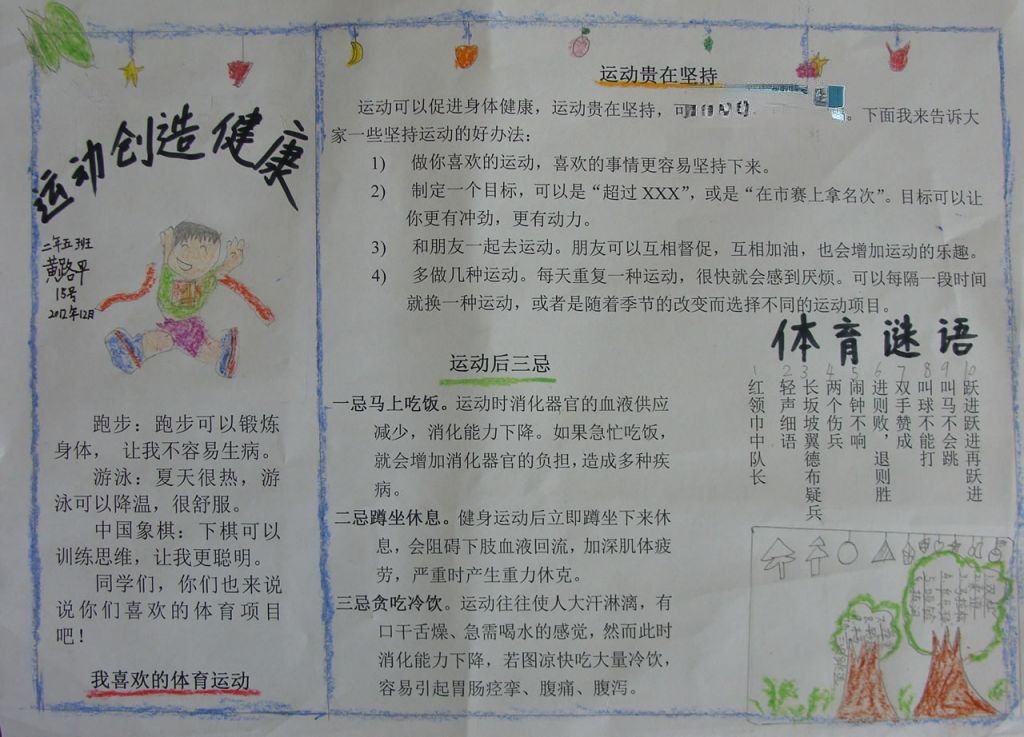 运动创造健康
二年五班
黄路平
15号
2012年12月
跑步：跑步可以锻炼
身体， 让我不容易生病。
游泳：夏天很热，游
泳可以降温，很舒服。
中国象棋：下棋可以
训练思维，让我更聪明。
同学们，你们也来说
说你们喜欢的体育项目
吧！
我喜欢的体育运动
运动贵在坚持
运动可以促进身体健康，运动贵在坚持，可 。下面我来告诉大
家一些坚持运动的好办法：
1) 做你喜欢的运动，喜欢的事情更容易坚持下来。
2) 制定一个目标，可以是“超过 XXX”，或是“在市赛上拿名次”。目标可以让
你更有冲劲，更有动力。
3) 和朋友一起去运动。朋友可以互相督促，互相加油，也会增加运动的乐趣。
4) 多做几种运动。每天重复一种运动，很快就会感到厌烦。可以每隔一段时间
就换一种运动，或者是随着季节的改变而选择不同的运动项目。
运动后三忌
一忌马上吃饭。运动时消化器官的血液供应
减少，消化能力下降。如果急忙吃饭，
就会增加消化器官的负担，造成多种疾
病。
二忌蹲坐休息。健身运动后立即蹲坐下来休
息，会阻碍下肢血液回流，加深肌体疲
劳，严重时产生重力休克。
三忌贪吃冷饮。运动往往使人大汗淋漓，有
口干舌燥、急需喝水的感觉，然而此时
消化能力下降，若图凉快吃大量冷饮，
容易引起胃肠痉挛、腹痛、腹泻。
体育谜语
1 红领巾中队长
2 轻声细语
3 长坂坡翼德布疑兵
4 两个伤兵
5 闹钟不响
6 进则败，退则胜
7 双手赞成
8 叫球不能打
9 叫马不会跳
10 跃进跃进再跃进